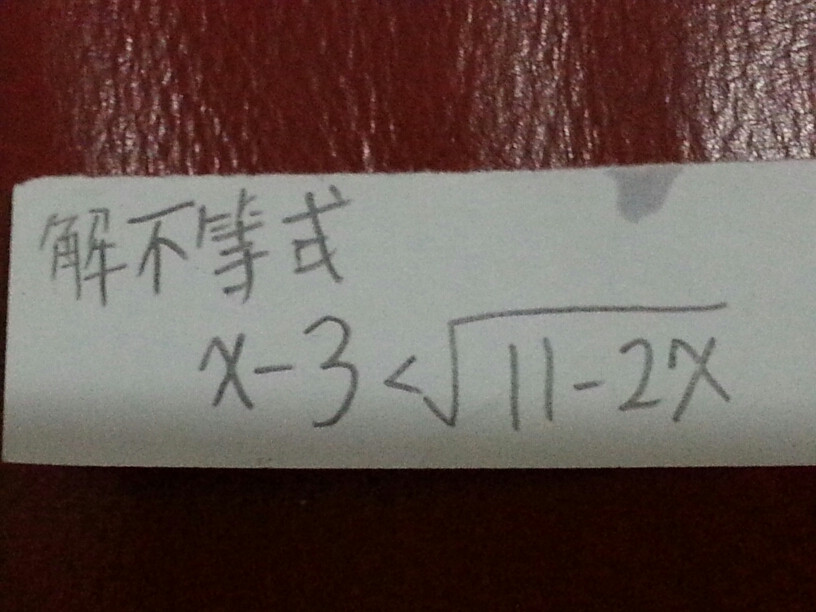 解不等式
x-3<√11-2x